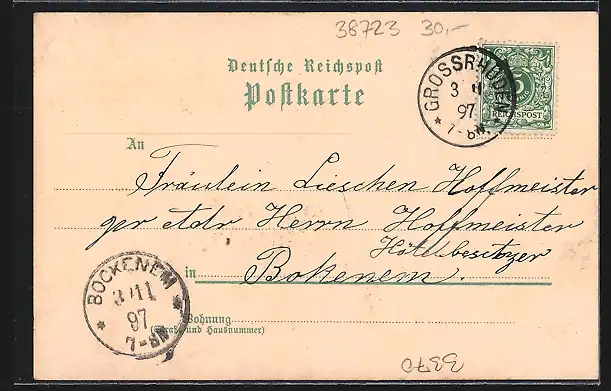 38723 30,-
Deutsche Reichspost
Postkarte
GROSSRHÜDEN
3 11
97
7-8N.
5
REICHSPOST
An
Fräulein Lieschen Hoffmeister
per Adr Herrn Hoffmeister
Hôtelbesitzer
in Bokenem.
BOCKENEM
3 11
97
7-8N
Wohnung
(Straße und Hausnummer)
3370